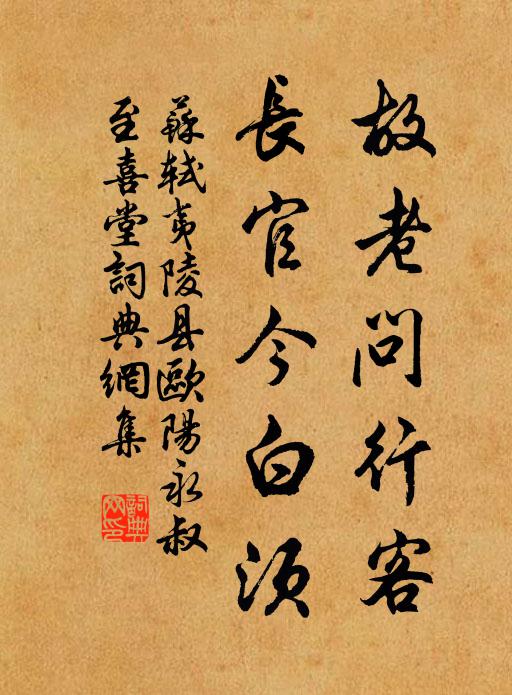 故老问行客
長官今白须
蘇軾夷陵县歐陽永叔
至喜堂詞典網集
詞典网印